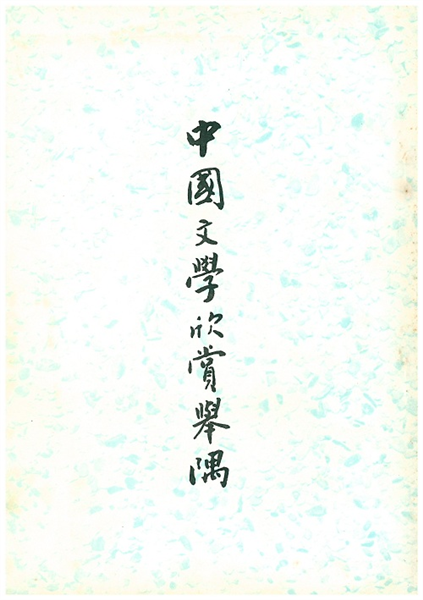 中國文學欣賞舉隅